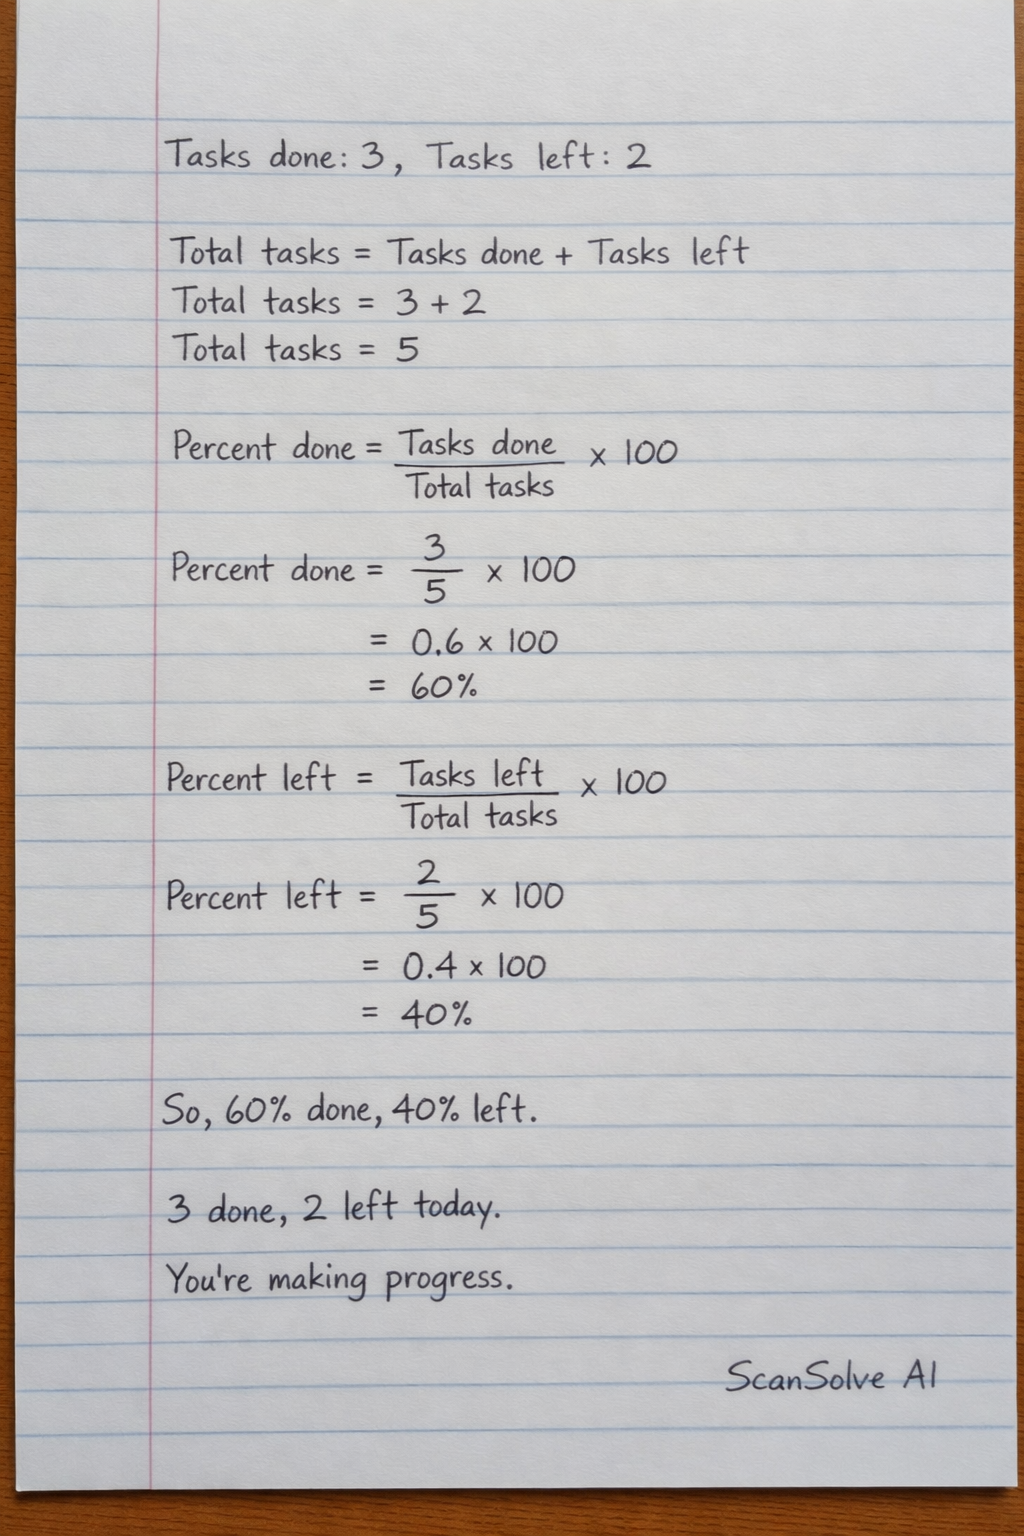 Tasks done: 3, Tasks left: 2
Total tasks = Tasks done + Tasks left
Total tasks = 3 + 2
Total tasks = 5
Percent done = Tasks done / Total tasks x 100
Percent done = 3 / 5 x 100
= 0.6 x 100
= 60%
Percent left = Tasks left / Total tasks x 100
Percent left = 2 / 5 x 100
= 0.4 x 100
= 40%
So, 60% done, 40% left.
3 done, 2 left today.
You're making progress.
ScanSolve AI